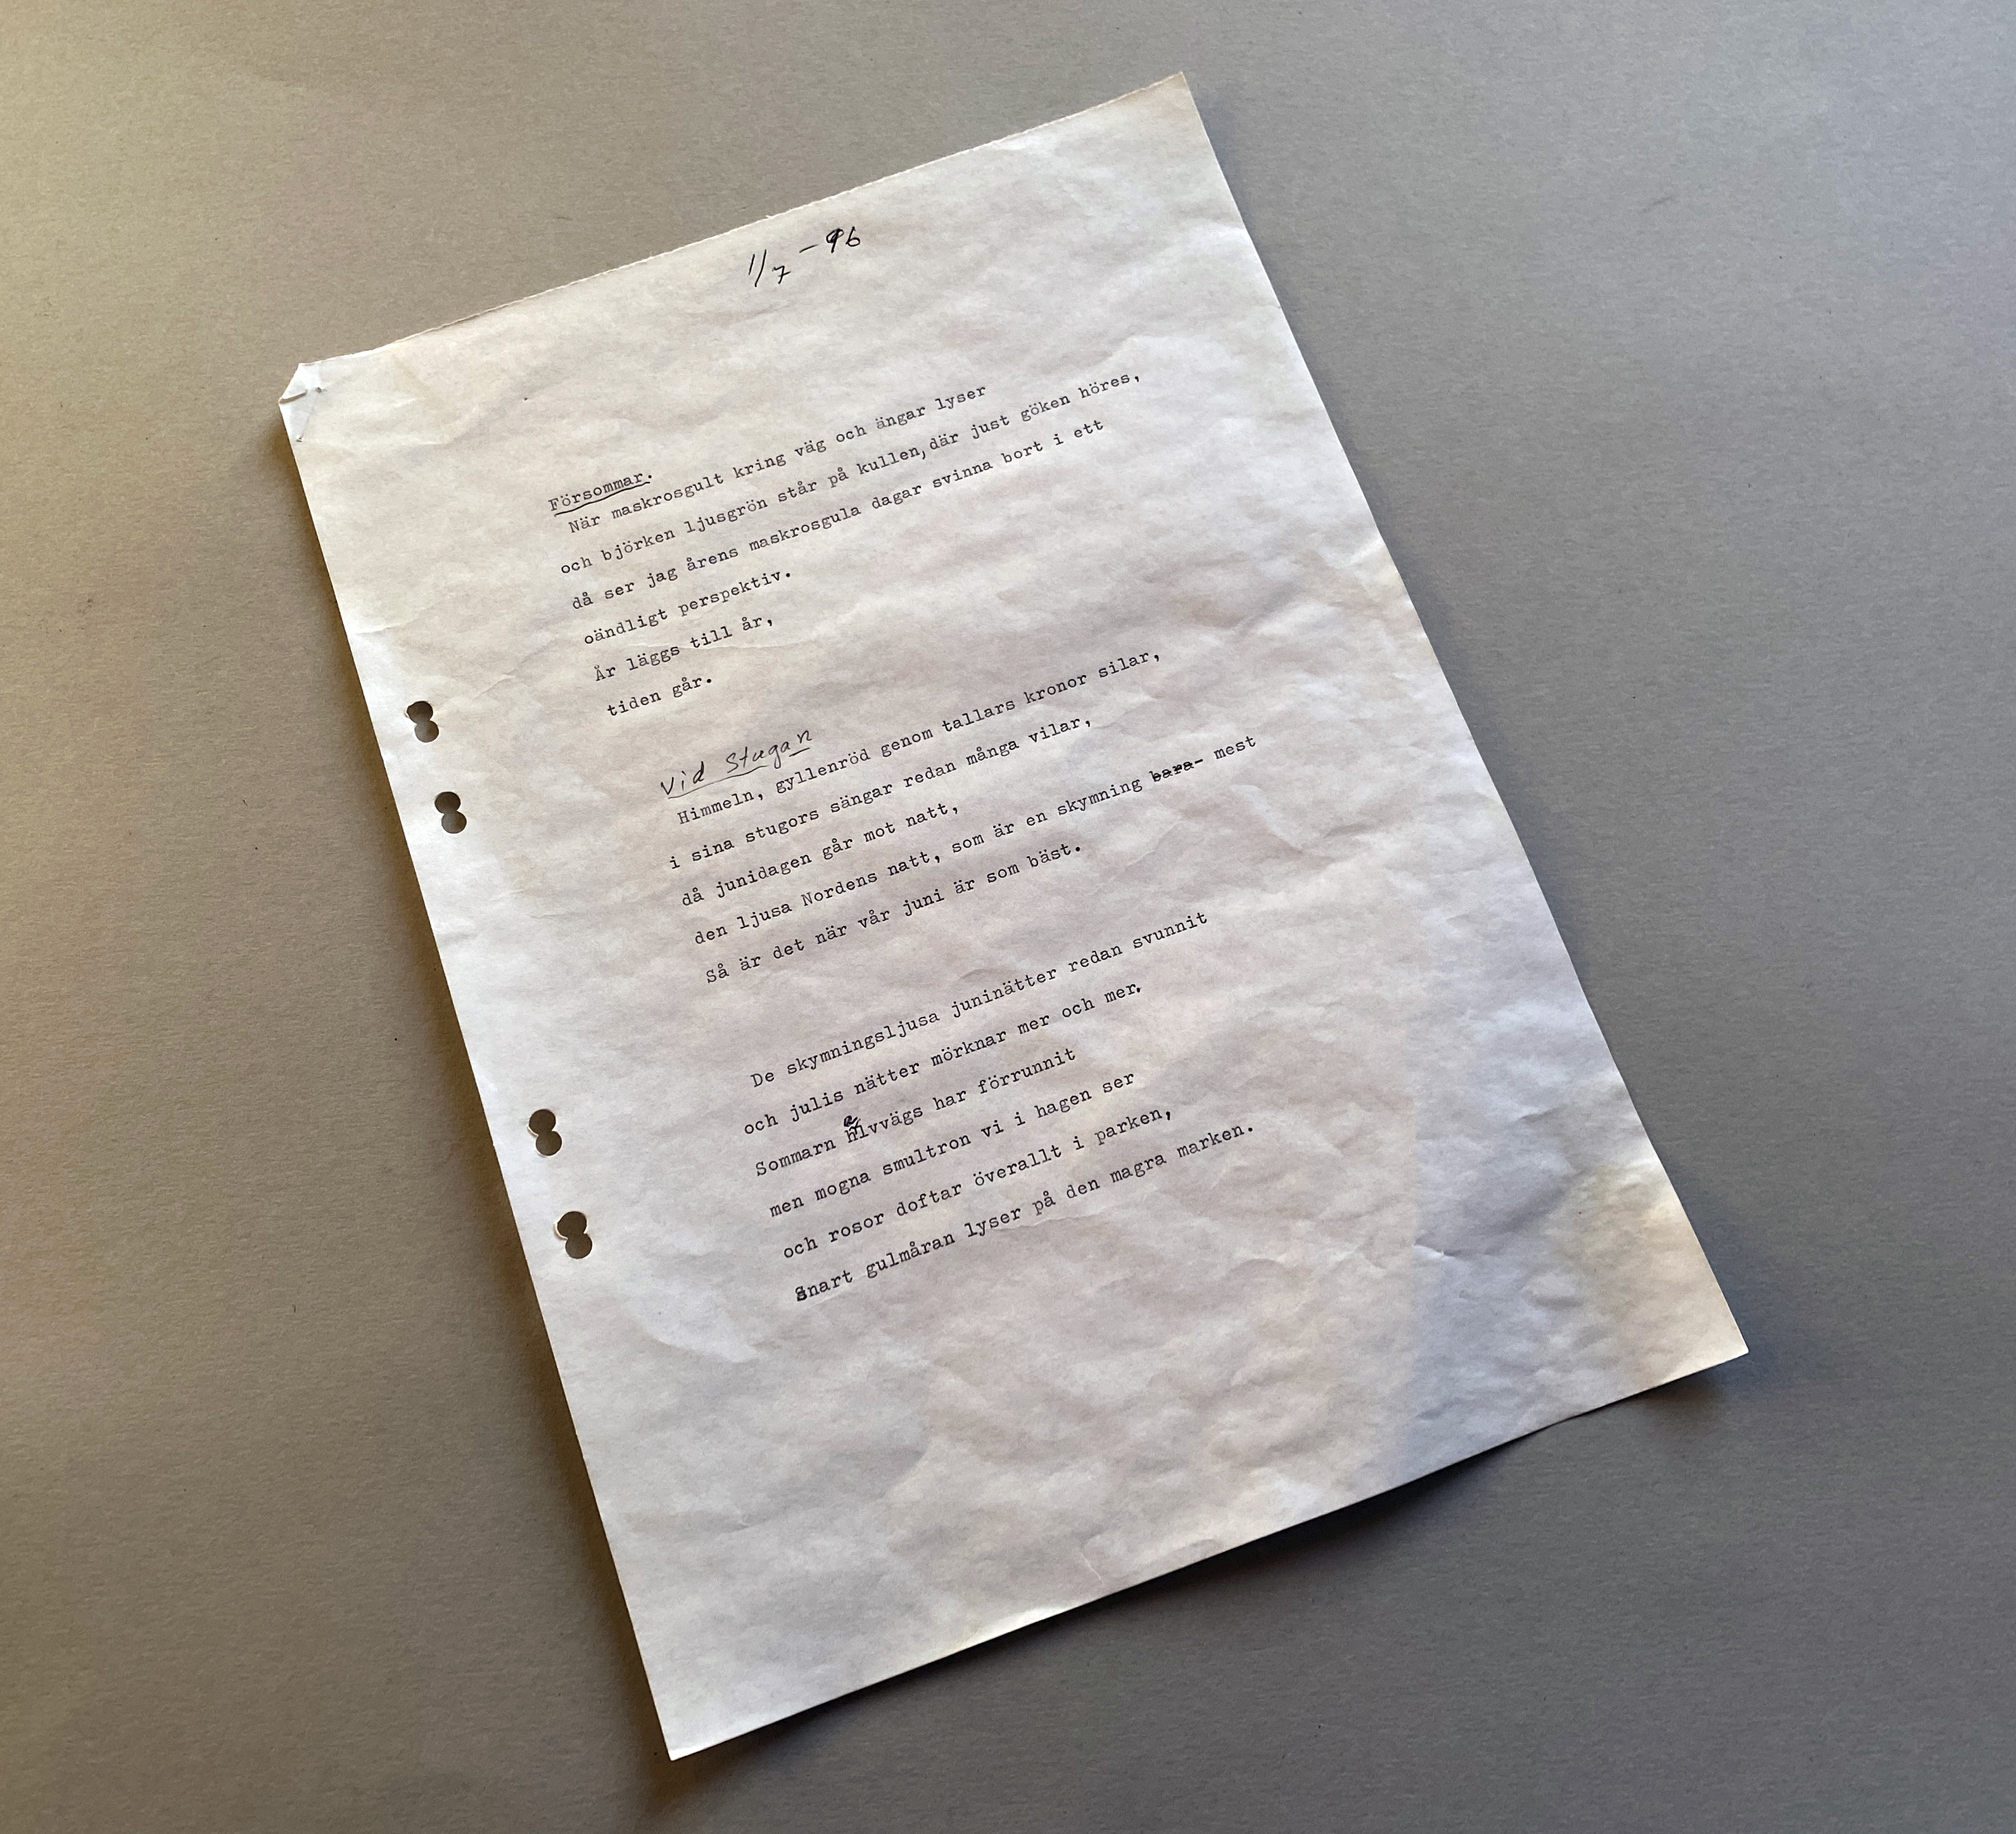 1/7 -96
Försommar.
När maskrosgult kring väg och ängar lyser
och björken ljusgrön står på kullen,där just göken höres,
då ser jag årens maskrosgula dagar svinna bort i ett
oändligt perspektiv.
År läggs till år,
tiden går.
Vid Stugan
Himmeln, gyllenröd genom tallars kronor silar,
i sina stugors sängar redan många vilar,
då junidagen går mot natt,
den ljusa Nordens natt, som är en skymning bara- mest
Så är det när vår juni är som bäst.
De skymningsljusa juninätter redan svunnit
och julis nätter mörknar mer och mer.
Sommarn halvvägs har förrunnit
men mogna smultron vi i hagen ser
och rosor doftar överallt i parken,
Snart gulmåran lyser på den magra marken.